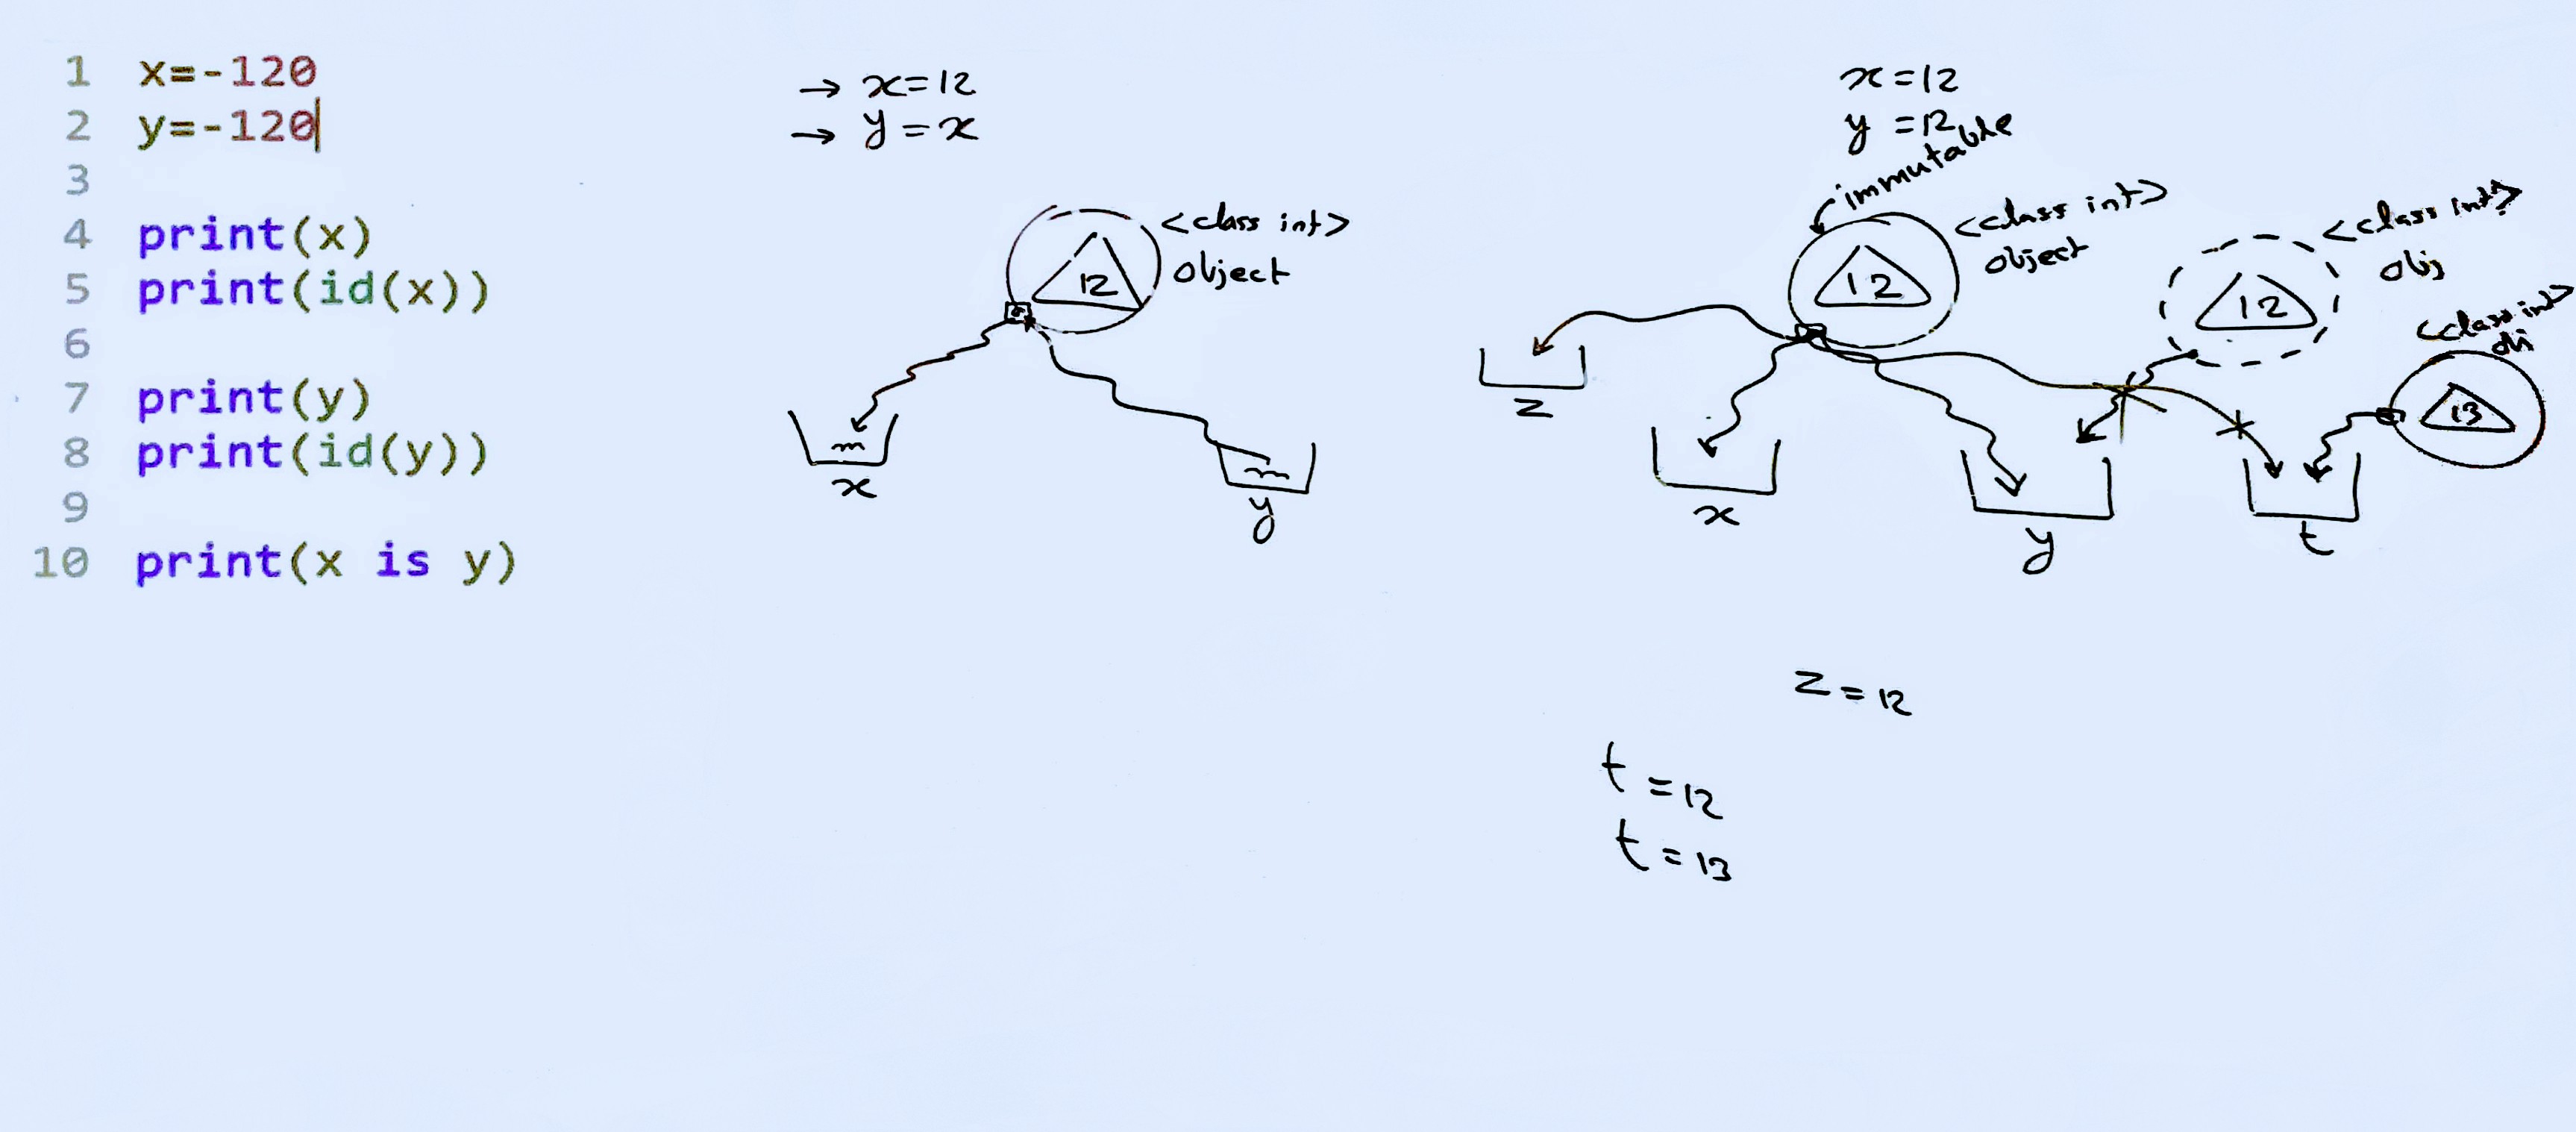 1 x=-120
2 y=-120
3
4 print(x)
5 print(id(x))
6
7 print(y)
8 print(id(y))
9
10 print(x is y)
→ x=12
→ y=x
<class int>
object
12
x
y
x=12
y=12
immutable
<class int>
object
12
<class int>
obj
12
<class int>
13
z
x
y
t
z=12
t=12
t=13